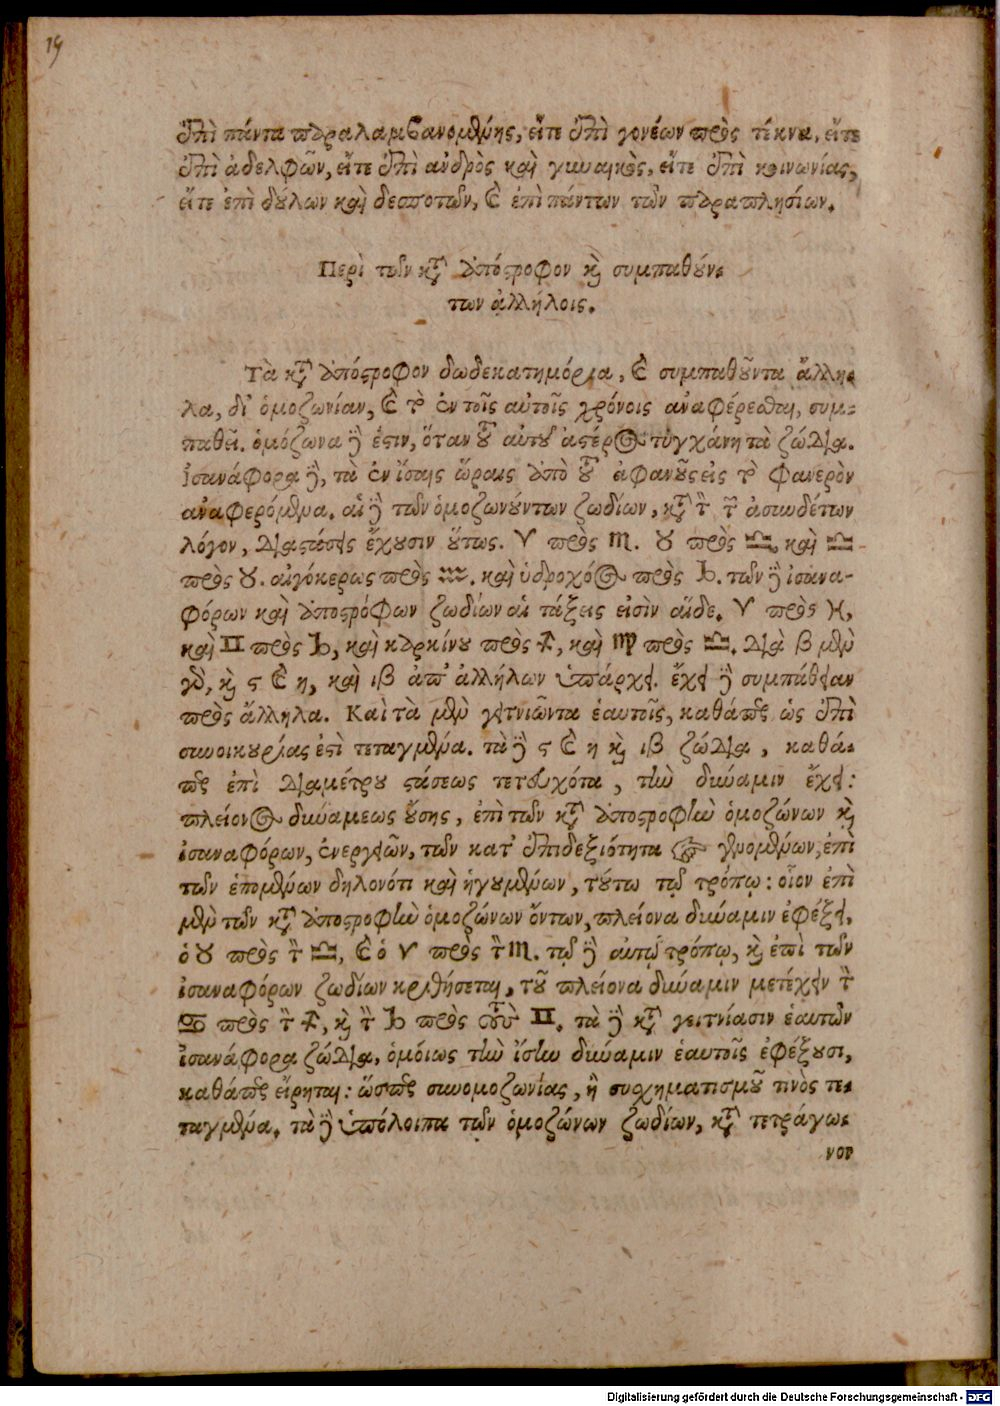 19
ἐπὶ πάντα παραλαμβανομένης, εἴτε ἐπὶ γονέων πρὸς τέκνα, εἴτε
ἐπὶ ἀδελφῶν, εἴτε ἐπὶ ἀνδρὸς καὶ γυναικὸς, εἴτε ἐπὶ κοινωνίας,
εἴτε ἐπὶ δούλων καὶ δεσποτῶν, καὶ ἐπὶ πάντων τῶν παραπλησίων.
Περὶ τῶν κατ' ἀπόστροφον καὶ συμπαθούν-
των ἀλλήλοις.
Τὰ κατ' ἀπόστροφον δωδεκατημόρια, καὶ συμπαθοῦντα ἄλλη-
λα, δι' ὁμοζωνίαν, καὶ τὸ ἐν τοῖς αὐτοῖς χρόνοις ἀναφέρεσθαι, συμ-
παθεῖ. ὁμόζωνα δὲ ἐστιν, ὅταν τοῦ αὐτοῦ ἀστέρος τυγχάνη τὰ ζώδια.
ἰσανάφορα δὲ, τὰ ἐν ἴσαις ὥραις ἀπὸ τοῦ ἀφανοῦς εἰς τὸ φανερὸν
ἀναφερόμενα. αἱ δὲ τῶν ὁμοζωνούντων ζωδίων, κατὰ τὸν τῶν ἀσυνδέτων
λόγον, διαστάσεις ἔχουσιν οὕτως. ♈ πρὸς ♏. ♉ πρὸς ♎, καὶ ♎
πρὸς ♉. αἰγόκερως πρὸς ♒. καὶ ὑδροχόος πρὸς ♑. τῶν δὲ ἰσανα-
φόρων καὶ ἀποστρόφων ζωδίων αἱ τάξεις εἰσὶν αἵδε. ♈ πρὸς ♓,
καὶ ♊ πρὸς ♑, καὶ καρκίνου πρὸς ♐, καὶ ♍ πρὸς ♎. διὰ β μὲν
γὰρ, καὶ ϛ καὶ η, καὶ ιβ ἀπ' ἀλλήλων ὑπάρχει. ἔχει δὲ συμπάθειαν
πρὸς ἄλληλα. Καὶ τὰ μὲν γειτνιῶντα ἑαυτοῖς, καθάπερ ὡς ἐπὶ
συνοικουρίας ἐστὶ τεταγμένα. τὰ δὲ ϛ καὶ η καὶ ιβ ζώδια, καθά-
περ ἐπὶ διαμέτρου στάσεως τετευχότα, τὴν δύναμιν ἔχει:
πλείονος δυνάμεως οὔσης, ἐπὶ τῶν κατ' ἀποστροφὴν ὁμοζώνων καὶ
ἰσαναφόρων, ἐνεργειῶν, τῶν κατ' ἐπιδεξιότητα γενομένων, ἐπὶ
τῶν ἑπομένων δηλονότι καὶ ἡγουμένων, τούτω τῷ τρόπῳ: οἷον ἐπὶ
μὲν τῶν κατ' ἀποστροφὴν ὁμοζώνων ὄντων, πλείονα δύναμιν ἐφέξει,
ὁ ♉ πρὸς τὸν ♎, καὶ ὁ ♈ πρὸς τὸν ♏. τῷ δὲ αὐτῷ τρόπῳ, καὶ ἐπὶ τῶν
ἰσαναφόρων ζωδίων κριθήσεται, τοῦ πλείονα δύναμιν μετέχειν τὸν
♋ πρὸς τὸν ♐, καὶ τὸν ♑ πρὸς τοὺς ♊. τὰ δὲ κατὰ γειτνίασιν ἑαυτῶν
ἰσανάφορα ζώδια, ὁμοίως τὴν ἴσην δύναμιν ἑαυτοῖς ἐφέξουσι,
καθάπερ εἴρηται: ὥσπερ συνομοζωνίας, ἢ συσχηματισμοῦ τινὸς τε-
ταγμένα. τὰ δὲ ὑπόλοιπα τῶν ὁμοζώνων ζωδίων, κατὰ τετράγω-
νον
Digitalisierung gefördert durch die Deutsche Forschungsgemeinschaft - DFG